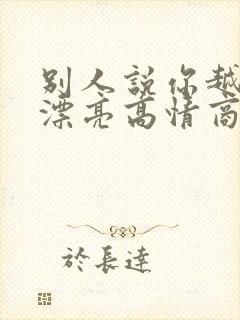 別人說你越
漂亮高情商
於長達